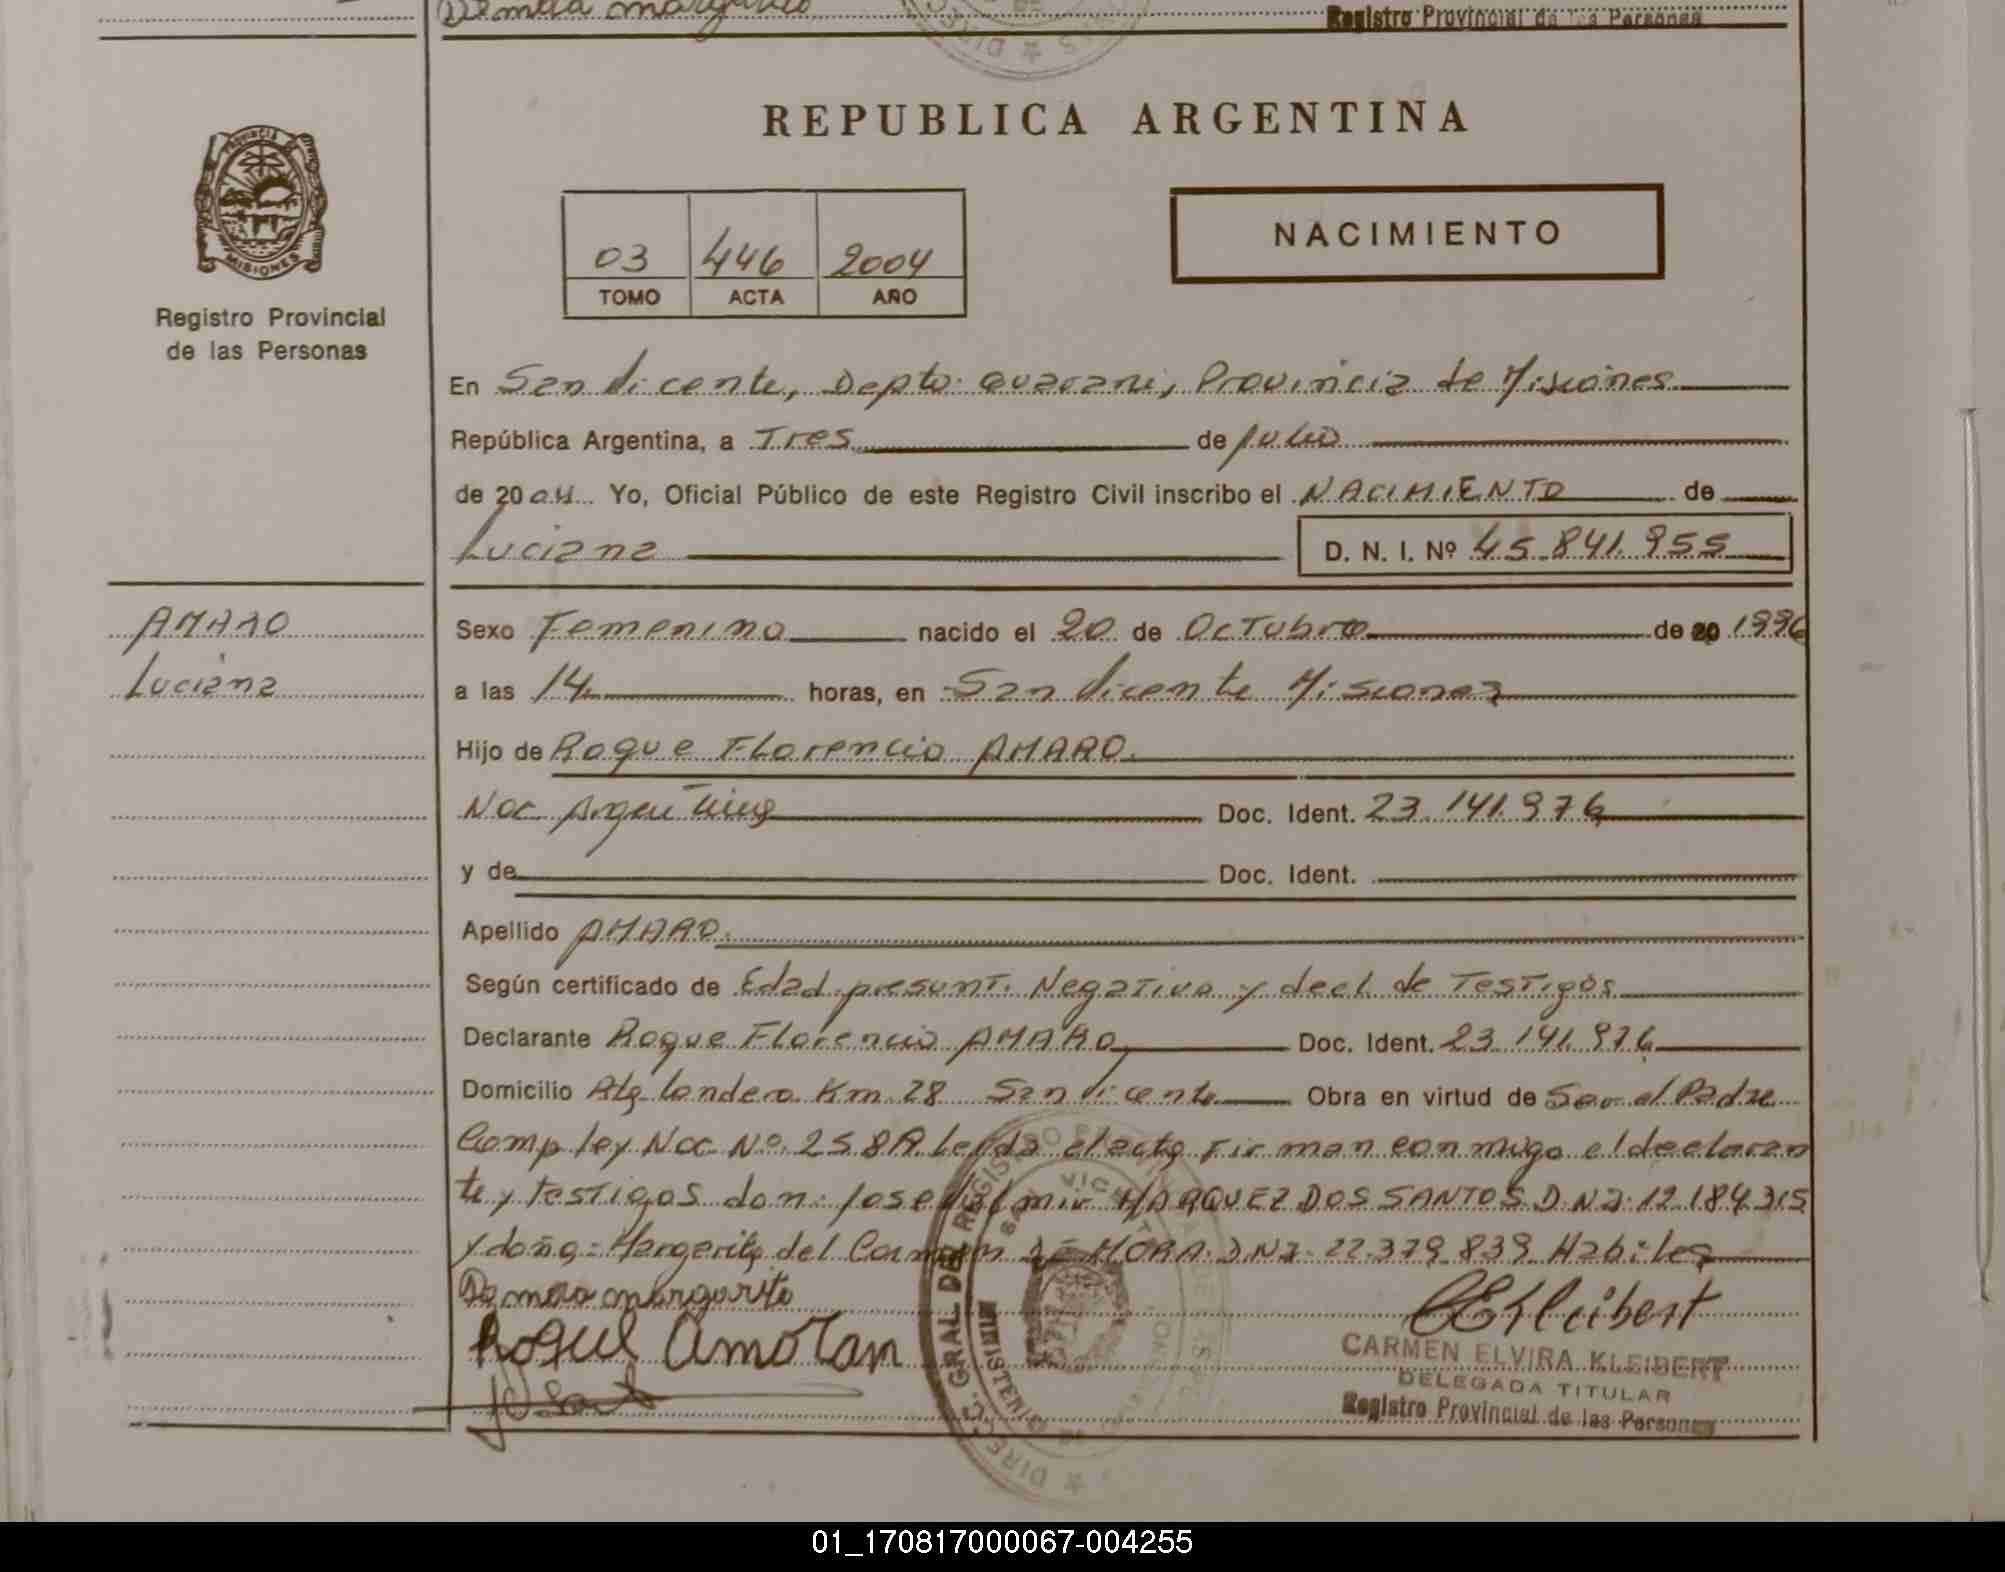 Demora margarito
Registro Provincial de las Personas
REPUBLICA ARGENTINA
PROVINCIA
MISIONES
Registro Provincial
de las Personas
03 446 2004
TOMO ACTA AÑO
NACIMIENTO
En San Vicente, Depto. Guarani, Provincia de Misiones
República Argentina, a Tres de Julio
de 2004 Yo, Oficial Público de este Registro Civil inscribo el NACIMIENTO de
Luciana D. N. I. Nº 45.841.955
AMARO
Luciana
Sexo Femenino nacido el 20 de Octubre de 20 1996
a las 14 horas, en San Vicente Misiones
Hijo de Roque Florencio AMARO.
Nac Argentina Doc. Ident. 23.141.976
y de Doc. Ident.
Apellido AMARO.
Según certificado de Edad presunt. Negativa y decl. de Testigos
Declarante Roque Florencio AMARO Doc. Ident. 23.141.976
Domicilio Km 28 San Vicente Obra en virtud de Ser el Padre
Comp ley Nac. Nº 25.819. Leida el acta firman conmigo el declaran
te y testigos don: Jose MARQUEZ DOS SANTOS D.N.I. 12.184.315
y doña: Margarita del Carmen DE MORA. D.N.I. 22.379.839 Habiles
Demora margarito
Roque Amaran
CEKleibert
CARMEN ELVIRA KLEIBERT
DELEGADA TITULAR
Registro Provincial de las Personas
01_170817000067-004255